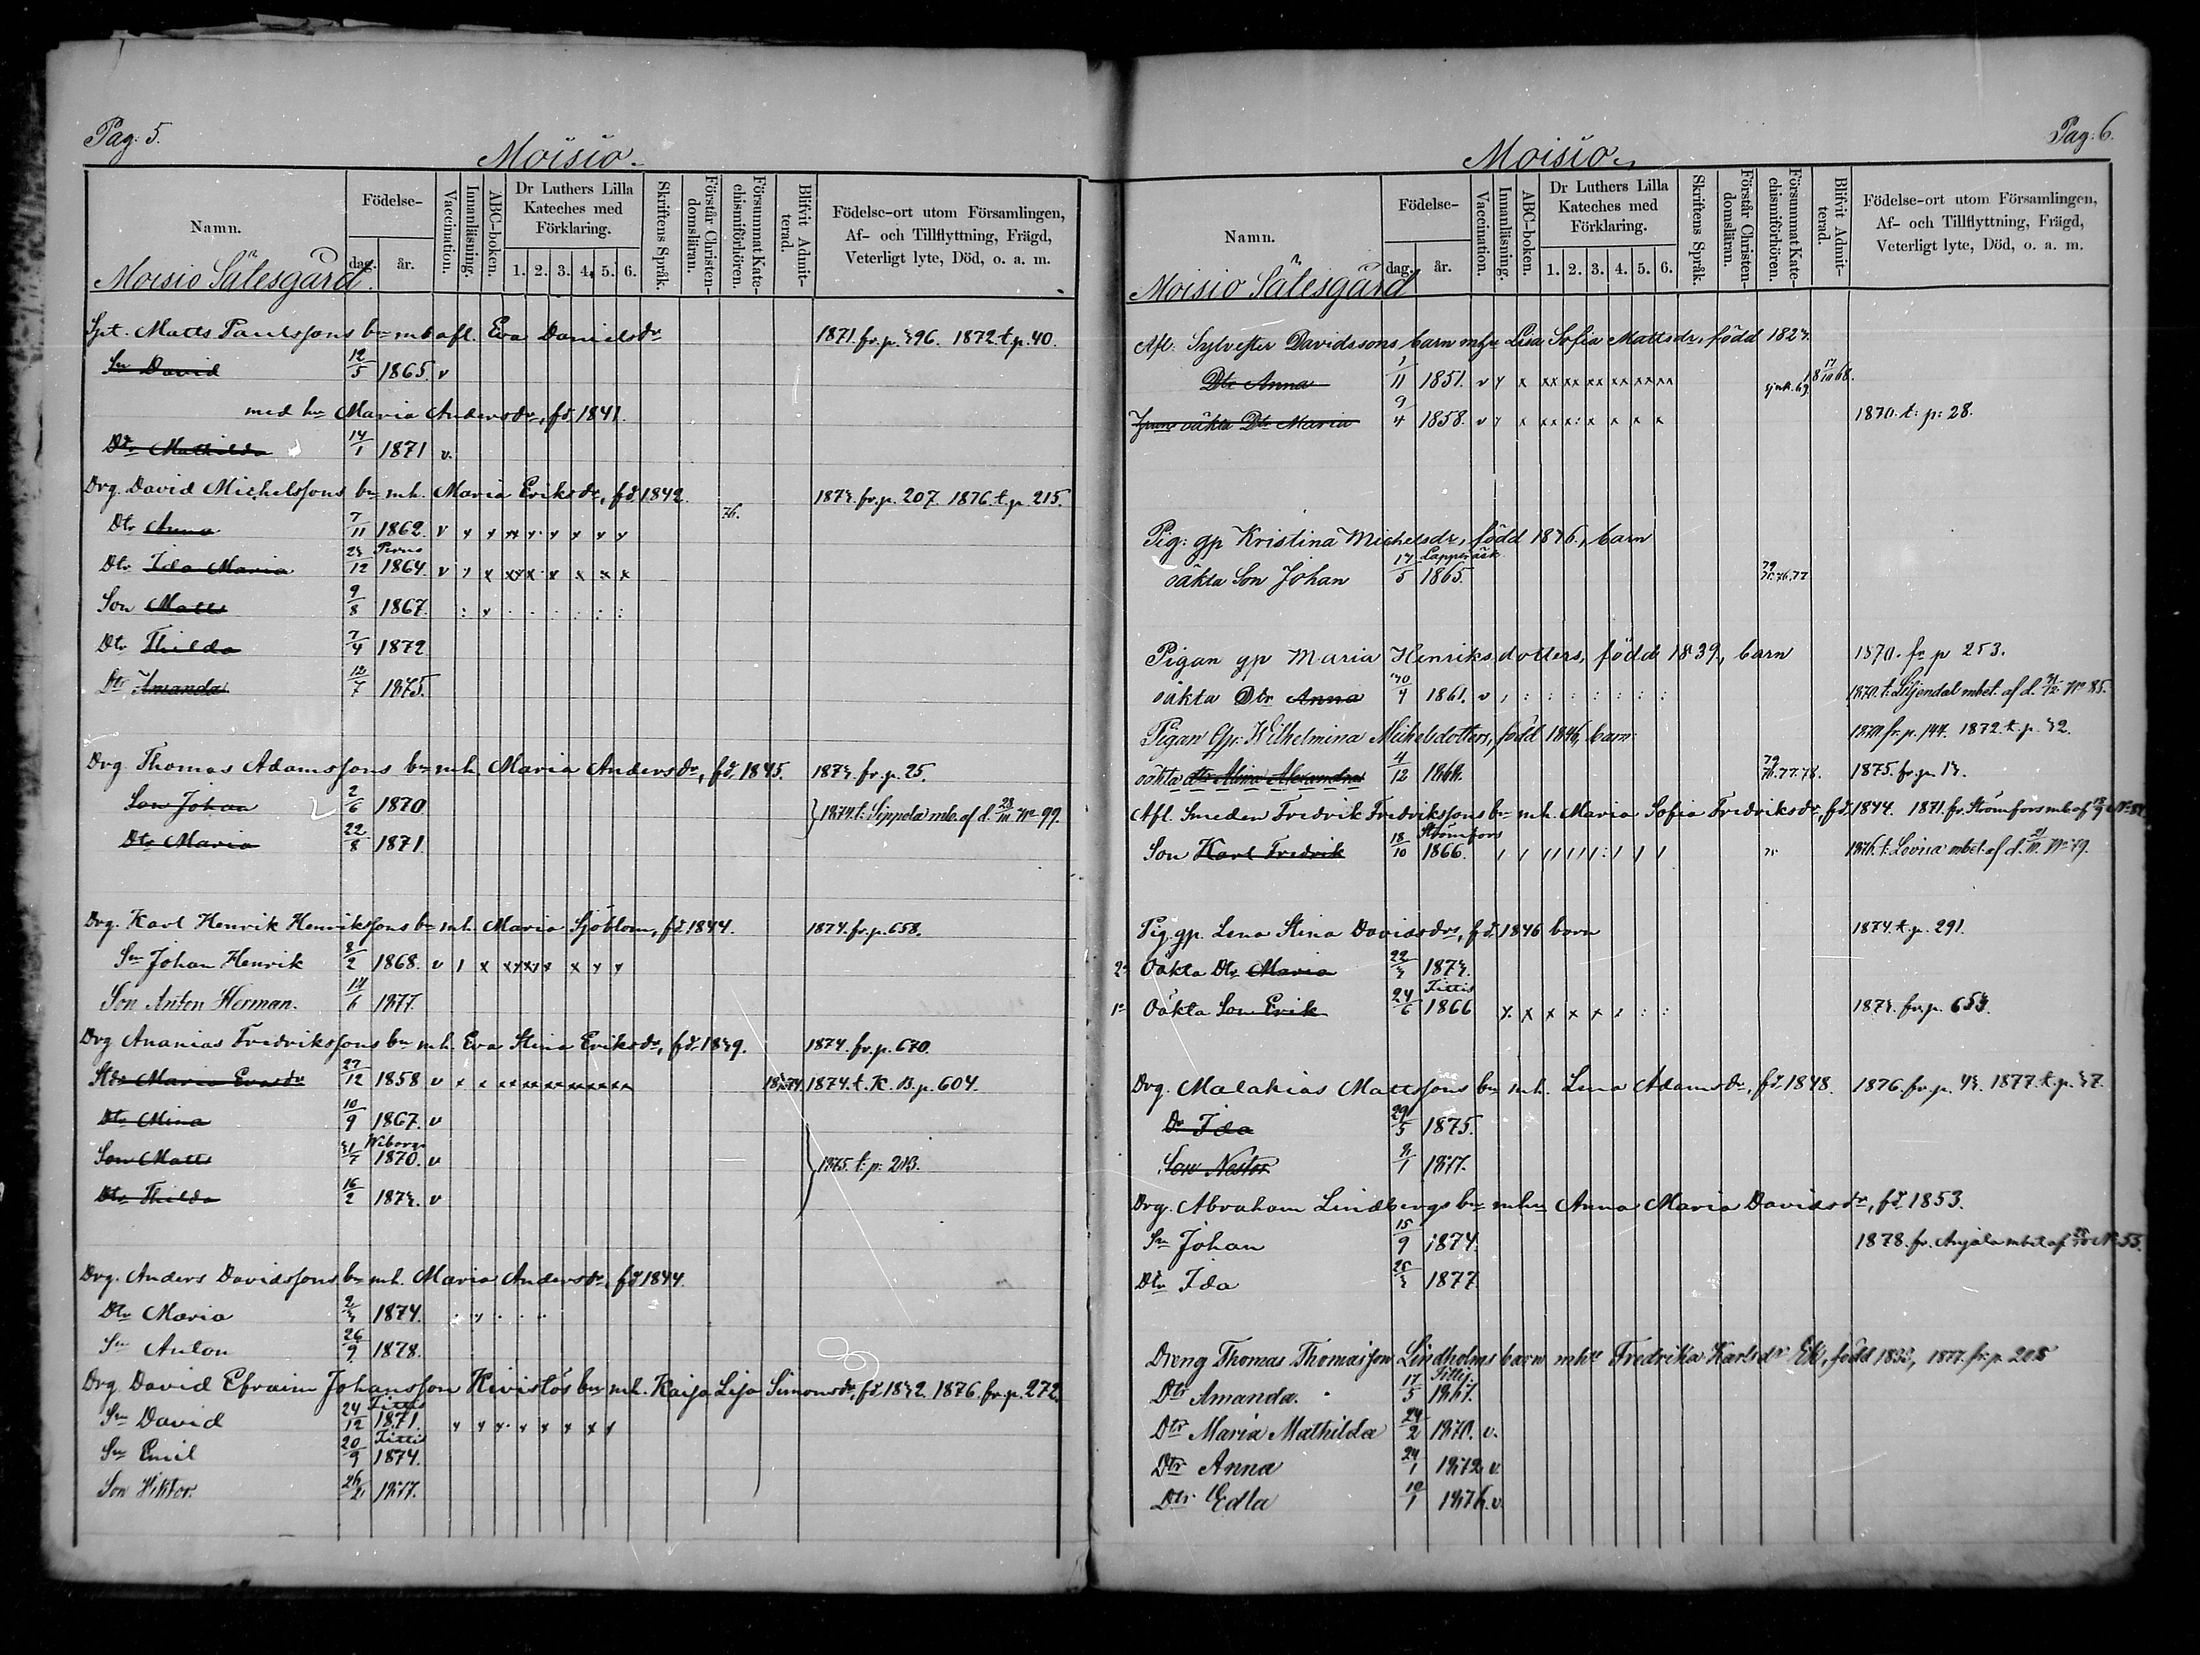 Pag: 5.
Moisio.
Namn.
Födelse-
dag.
år.
Vaccination.
Innanläsning.
ABC-boken.
Dr Luthers Lilla Kateches med Förklaring.
1. 2. 3. 4. 5. 6.
Skriftens Språk.
Förstår Christendomsläran.
Försummat Katechismiförhören.
Blifvit Admitterad.
Födelse-ort utom Församlingen,
Af- och Tillflyttning, Frägd,
Veterligt lyte, Död, o. a. m.
Moisio Sälesgård.
Spt. Matts Paulssons bn mb afl. Eva Danielsdr 1871. fr. p. 396. 1872 t. p. 40.
Sn David 12/5 1865. v
med hu Maria Andersdr, fd. 1841.
Dtr Mathilda 14/1 1871 v.
Drg. David Michelssons bn mh. Maria Eriksdr, fd 1842. 76. 1873. fr. p. 207. 1876. t. p. 215.
Dtr Anna 7/11 1862. v
Dtr Ida Maria 23/12 Perno 1864. v
Son Matts 9/8 1867.
Dtr Thilda 7/4 1872
Dtr Amanda 12/7 1875.
Drg Thomas Adamssons bn mh. Maria Andersdr, fd. 1845. 1873. fr. p. 25.
Son Johan 2/6 1870 1874. t. Sippola mb. af d. 23/III No 99.
Dtr Maria 22/8 1871.
Drg. Karl Henrik Henrikssons bn mh. Maria Sjöblom, fd. 1844. 1874. fr. p. 658.
Sn Johan Henrik 8/2 1868. v
Son Anton Herman. 14/6 1877.
Drg Ananias Fredrikssons bn mh. Eva Stina Eriksdr, fd. 1839. 1874. fr. p. 670.
Maria Evasdr 27/12 1858 v 1874. t. K. B. p. 604.
Dtr Mina 10/9 1867. v
Son Matts 31/7 Wiborgs 1870. v 1875. t. p. 213.
Dtr Thilda 16/2 1873. v
Drg. Anders Davidssons bn mh. Maria Andersdr, fd 1844.
Dtr Maria 2/3 1874.
Sn Anton 26/9 1878.
Drg. David Efraim Johansson Hivistös bn mh. Kaija Lisa Simonsdr, fd. 1832. 1876. fr. p. 272.
Sn David 24/12 Tittis 1871.
Sn Emil 20/9 Tittis 1874.
Son Viktor. 26/2 1877.
Pag: 6.
Moisio.
Namn.
Födelse-
dag.
år.
Vaccination.
Innanläsning.
ABC-boken.
Dr Luthers Lilla Kateches med Förklaring.
1. 2. 3. 4. 5. 6.
Skriftens Språk.
Förstår Christendomsläran.
Försummat Katechismiförhören.
Blifvit Admitterad.
Födelse-ort utom Församlingen,
Af- och Tillflyttning, Frägd,
Veterligt lyte, Död, o. a. m.
Moisio Sälesgård
Afl. Sylvester Davidssons barn mhu Lisa Sofia Mattsdr, född 1823.
Dtr Anna 1/11 1851. v sjuk. 69.
oäkta Dtr Maria 9/4 1858. v 1870. t: p: 28.
Pig: gp Kristina Michelsdr, född 1836, barn
oäkta Son Johan 17/5 Lappträsk 1865.
Pigan gp Maria Henriksdotters, född 1839, barn 1870. fr p 253.
oäkta Dtr Anna 30/4 1861. v 1870. t. Liljendal mbet. af d. 31/12 No 85.
Pigan Gp. Wilhelmina Michelsdotters, född 1846, barn 1870. fr. p. 144. 1872. t. p. 32.
oäkta dtr Alina Alexandra 4/12 1868. 1875. fr. p. 13.
Afl. Smeden Fredrik Fredrikssons bn mh. Maria Sofia Fredriksdr, fd. 1844. 1871. fr. Strömfors mb. af
Son Karl Fredrik 18/10 Strömfors 1866. 1876. t. Lovisa mbet. af d.
Pig gp. Lena Stina Davidsdrs, fd. 1846 barn 1874. t. p. 291.
2o Oäkta Dtr Maria 22/3 1873.
1o Oäkta Son Erik 24/6 Tittis 1866 1873. fr. p. 653.
Drg. Malakias Mattssons bn mh. Lena Adamsdr, fd. 1848. 1876. fr. p. 43. 1877. t. p. 37.
Dr Ida 29/5 1875.
Son Nestor 8/1 1877.
Drg. Abraham Lindbergs bn mhu Anna Maria Davidsdr, fd. 1853.
Sn Johan 15/9 1874. 1878. fr. Anjala mbet af No 53.
Dtr Ida 25/3 1877.
Dreng Thomas Thomasson Lindholms barn mhu Fredrika Karlsdr Ek, född 1833, 1877. fr. p. 205
Dtr Amanda. 17/5 1867.
Dtr Maria Mathilda 24/2 1870. v.
Dtr Anna 24/1 1872. v.
Dtr Edla 10/1 1876. v.